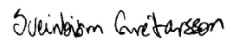 Sveinbjörn Grétarsson